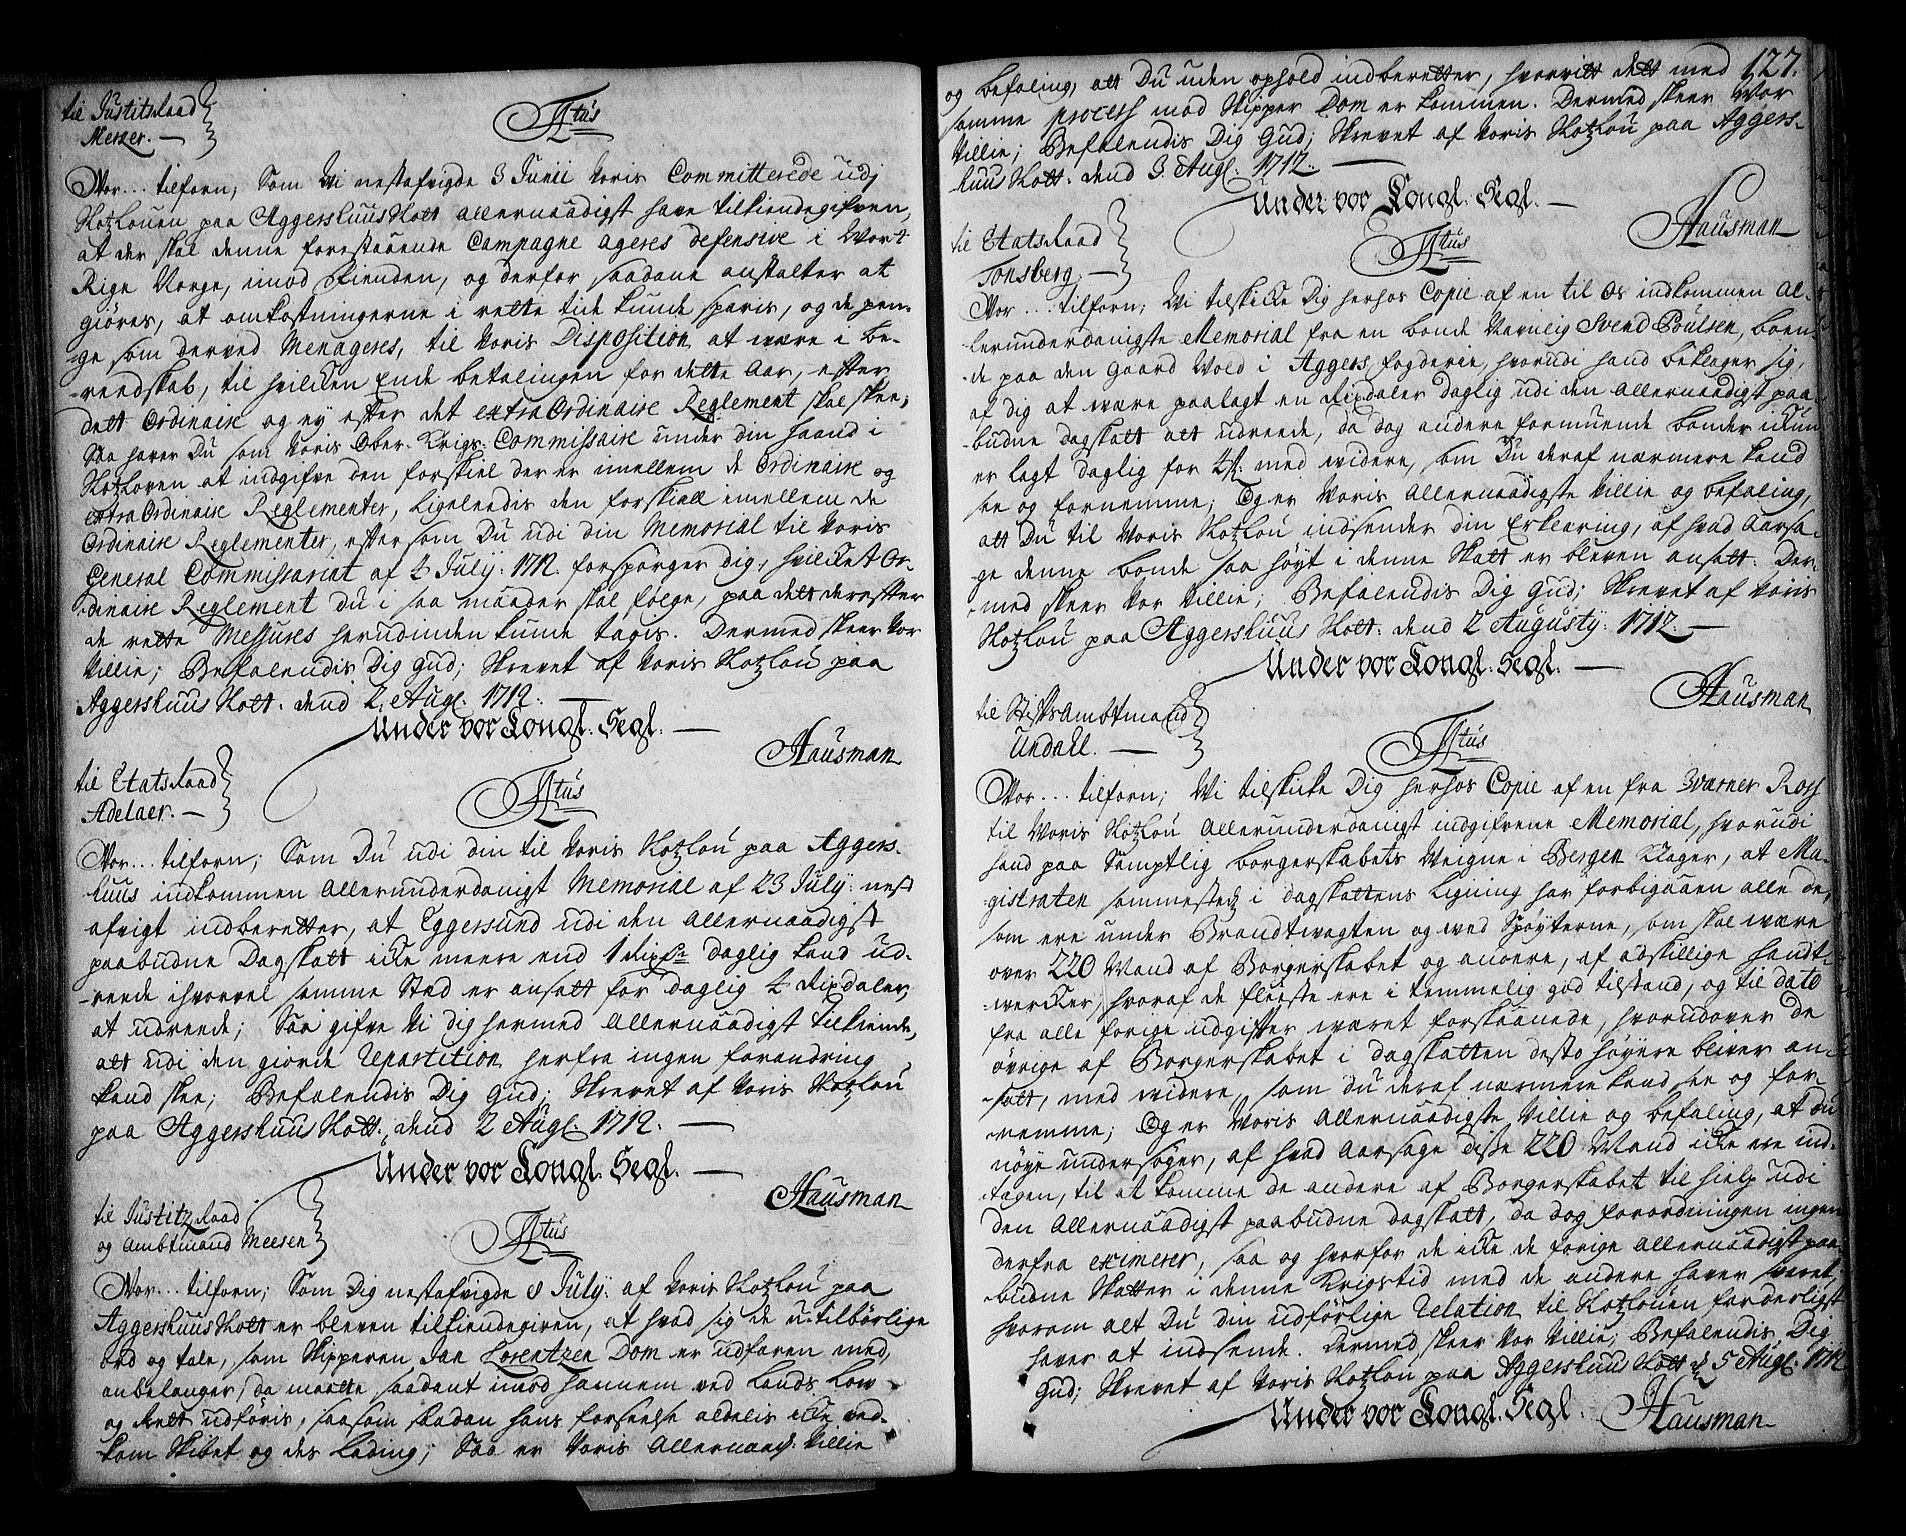 til Justitsraad
Merker. —
F4tus
Vor... tilforn; Som Wi nestafvigde 3 Junii Voris Committerede udj
Slotzlouen paa Aggershuus Slott allernaadigst have tilkiendegifven,
at der skal denne forestaaende Campagne ageres defensive i Wort
Rige Norge, imod Fienden, og derfor saadane anstalter at
giöres, at omkostningerne i rette tide kunde sparis, og de pen-
ge som derved Menageres, til Voris Disposition at være i be-
reedskab, til hvilcken Ende betalingen for dette Aar, efter
dett Ordinaire og ey efter det extraOrdinaire Reglement skal skee;
Saa haver Du som Voris Ober-Krigs-Commissaire under din haand i
Slotzloven at indgifve den forskiel der er imellem de Ordinaire og
extraOrdinaire Reglementer, ligeleedis den forskiæll imellem de
Ordinaire Reglementer, efter som Du udi din Memorial til Voris
General Commissariat af 2 July: 1712. forspørger dig, hvilcket Or-
dinaire Reglement du i saa maader skal følge, paa dett derefter
de rette Messures herudinden kunde tagis. Dermed skeer Vor
Villie; Befalendis Dig Gud; Skrevet af Voris Slotzlou paa
Aggershuus Slott. dend 2. Augl. 1712. —
Under vor Kongl. Segl. —
Hausman
til Etatsraad
Adelaer. —
F4tus
Vor... tilforn; Som Du udi din til Voris Slotzlou paa Aggers-
huus indkommen Allerunderdanigst Memorial af 23 July: nest
afvigt indberetter, at Eggersund udi den Allernaadigst
paabudne Dagskatt icke meere end 1 Rixdr. daglig kand ud-
reede ihvorvel samme Stæd er ansatt for daglig 2 Rixdaler,
at udreede; Saa gifve Vi dig hermed Allernaadigst tilkiende,
att udi den giorde Repartition herfra ingen forandring
kand skee; Befalendis Dig Gud; Skrevet af Voris Slotzlou
paa Aggershuus Slott. dend 2 Augl. 1712. —
Under vor Kongl. Segl. —
Hausman
til Justitz Raad
og Ambtmand Meesen
F4tus
Vor... tilforn; Som Dig nestafvigde 8 July: af Voris Slotzlou paa
Aggershuus Slott er bleven tilkiendegiven, at hvad sig de u-tilbörlige
ord og tale, som Skipperen Jan Lorentzen Dom er udfaren med,
anbelanger, da maatte saadant imod hannem ved Lands Low
og Rett udföris, saasom saadan hans forseelse aldelis icke ved-
kom Skibet og des Lading; Saa er Voris Allernaad: Villie
127.
og befaling, att Du uden ophold indberetter, hvorvitt dett med
samme process mod Skipper Dom er kommen. Dermed skeer Vor
Villie; Befalendis Dig Gud; Skrevet af Voris Slotzlou paa Aggers-
huus Slott. dend 3. Augl. 1712. —
Under vor Kongl. Segl. —
Hausman
til Etatsraad
Tonsberg. —
F4tus
Vor... tilforn; Wi tilskicke Dig herhos Copie af en til Os indkommen Al-
lerunderdanigste Memorial fra en bonde Navnlig Svend Poulsen, boen-
de paa den Gaard Wold i Aggers fogderie, hvorudi hand beklager sig,
af dig at være paalagt en Rixdaler daglig udi den Allernaadigst paa-
budne dagskatt att udreede, da dog andere formuende bønder ickun
er lagt daglig for 4s. med widere, som Du deraf nærmere kand
see og fornemme; Og er Voris Allernaadigste Villie og befaling,
att Du til Voris Slotzlou indsender din Erklæring, af hvad Aarsa-
ge denne bonde saa høyt i denne Skatt er bleven ansatt. Der-
med skeer Vor Villie; Befalendis Dig Gud; Skrevet af Voris
Slotzlou paa Aggershuus Slott. dend 2 Augusty: 1712. —
Under vor Kongl. Segl. —
Hausman
til StiftsAmbtmand
Undall. —
F4tus
Vor... tilforn; Wi tilskicke Dig herhos Copie af en fra Warner Ross
til Voris Slotzlou Allerunderdanigst indgifvene Memorial, hvorudi
hand paa Samptlig borgerskabets Veigne i Bergen klager, at Ma-
gistraten sammestedz i dagskattens ligning har forbigaaen alle de,
som ere under Brandtwagten og ved Spøyterne, som skal wære
over 220 Mand af Borgerskabet og andere, af adskillige handt-
wercker, hvoraf de fleeste ere i temmelig god tilstand, og til dato
fra alle forige udgifter wæret forskaanede, hvorudover de
øvrige af Borgerskabet i dagskatten desto høyere bliver an-
satt, med widere, som du deraf nærmere kand see og for-
nemme; Og er Voris Allernaadigste Villie og befaling, at du
nøye undersøger, af hvad Aarsage disse 220 Mand icke ere ind-
tagen, til at komme de andere af Borgerskabet til hielp udi
den Allernaadigst paabudne dagskatt, da dog forordningen ingen
derfra eximerer, saa og hvorfor de icke de forige allernaadigst paa-
budne Skatter i denne Krigstid med de andere haver svaret,
hvorom alt Du din udförlige Relation til Slotzlouen forderligst
haver at indsende. Dermed skeer Vor Villie; Befalendis Dig
Gud; Skrevet af Voris Slotzlou paa Aggershuus Slott d. 5 Augl. 1712
Under vor Kongl. Segl.
Hausman